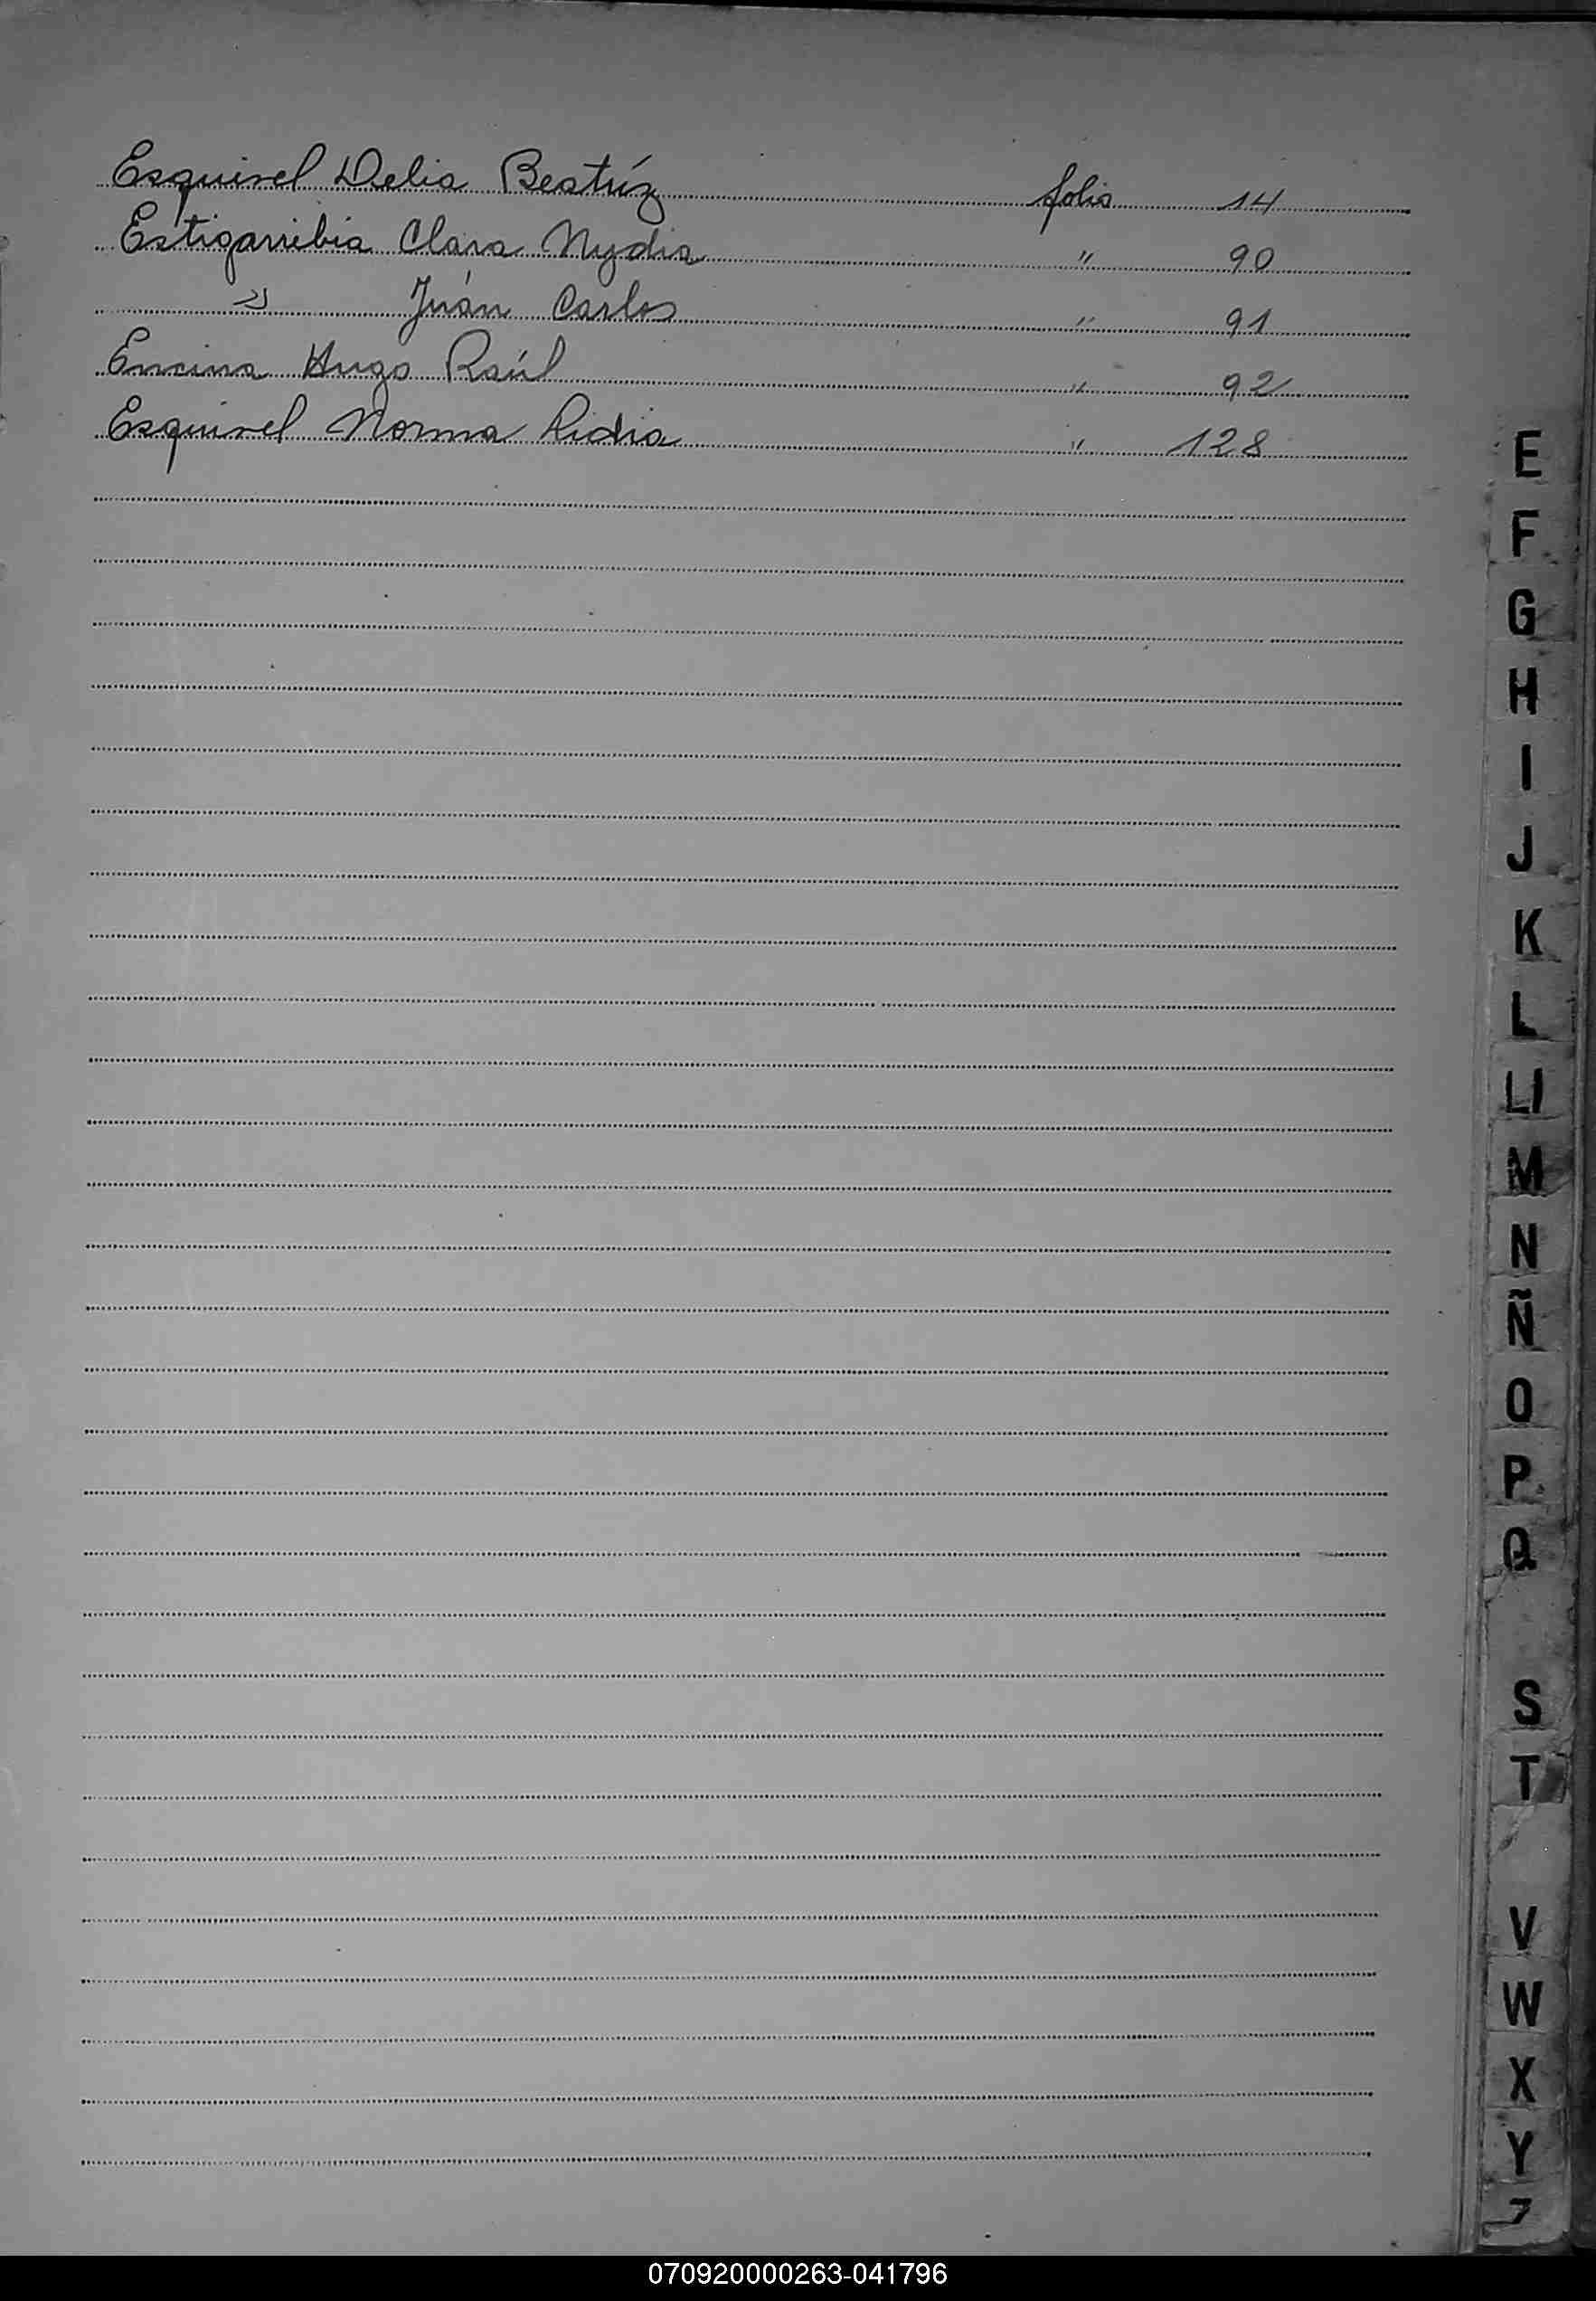 Esquivel Delia Beatríz folio 14
Estigarribia Clara Nydia " 90
" Juán Carlos " 91
Encina Hugo Raúl " 92
Esquivel Norma Lidia " 128
E
F
G
H
I
J
K
L
Ll
M
N
Ñ
O
P
Q
S
T
V
W
X
Y
Z
070920000263-041796